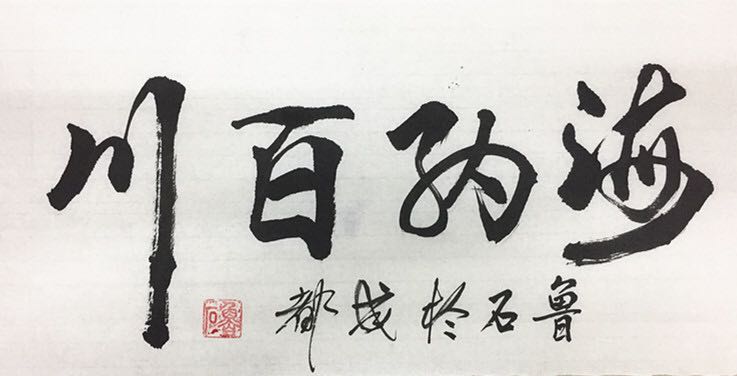 海纳百川
鲁石於成都